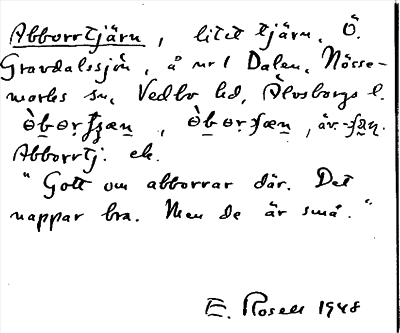 Abborrtjärn, litet tjärn, Ö.
Gravdalssjön, å nr 1 Dalen, Nösse-
marks sn, Vedbo hd, Älvsborgs l.
Abborrtj. ek.
"Gott om abborrar där. Det
nappar bra. Men de är små."
E. Rosell 1948